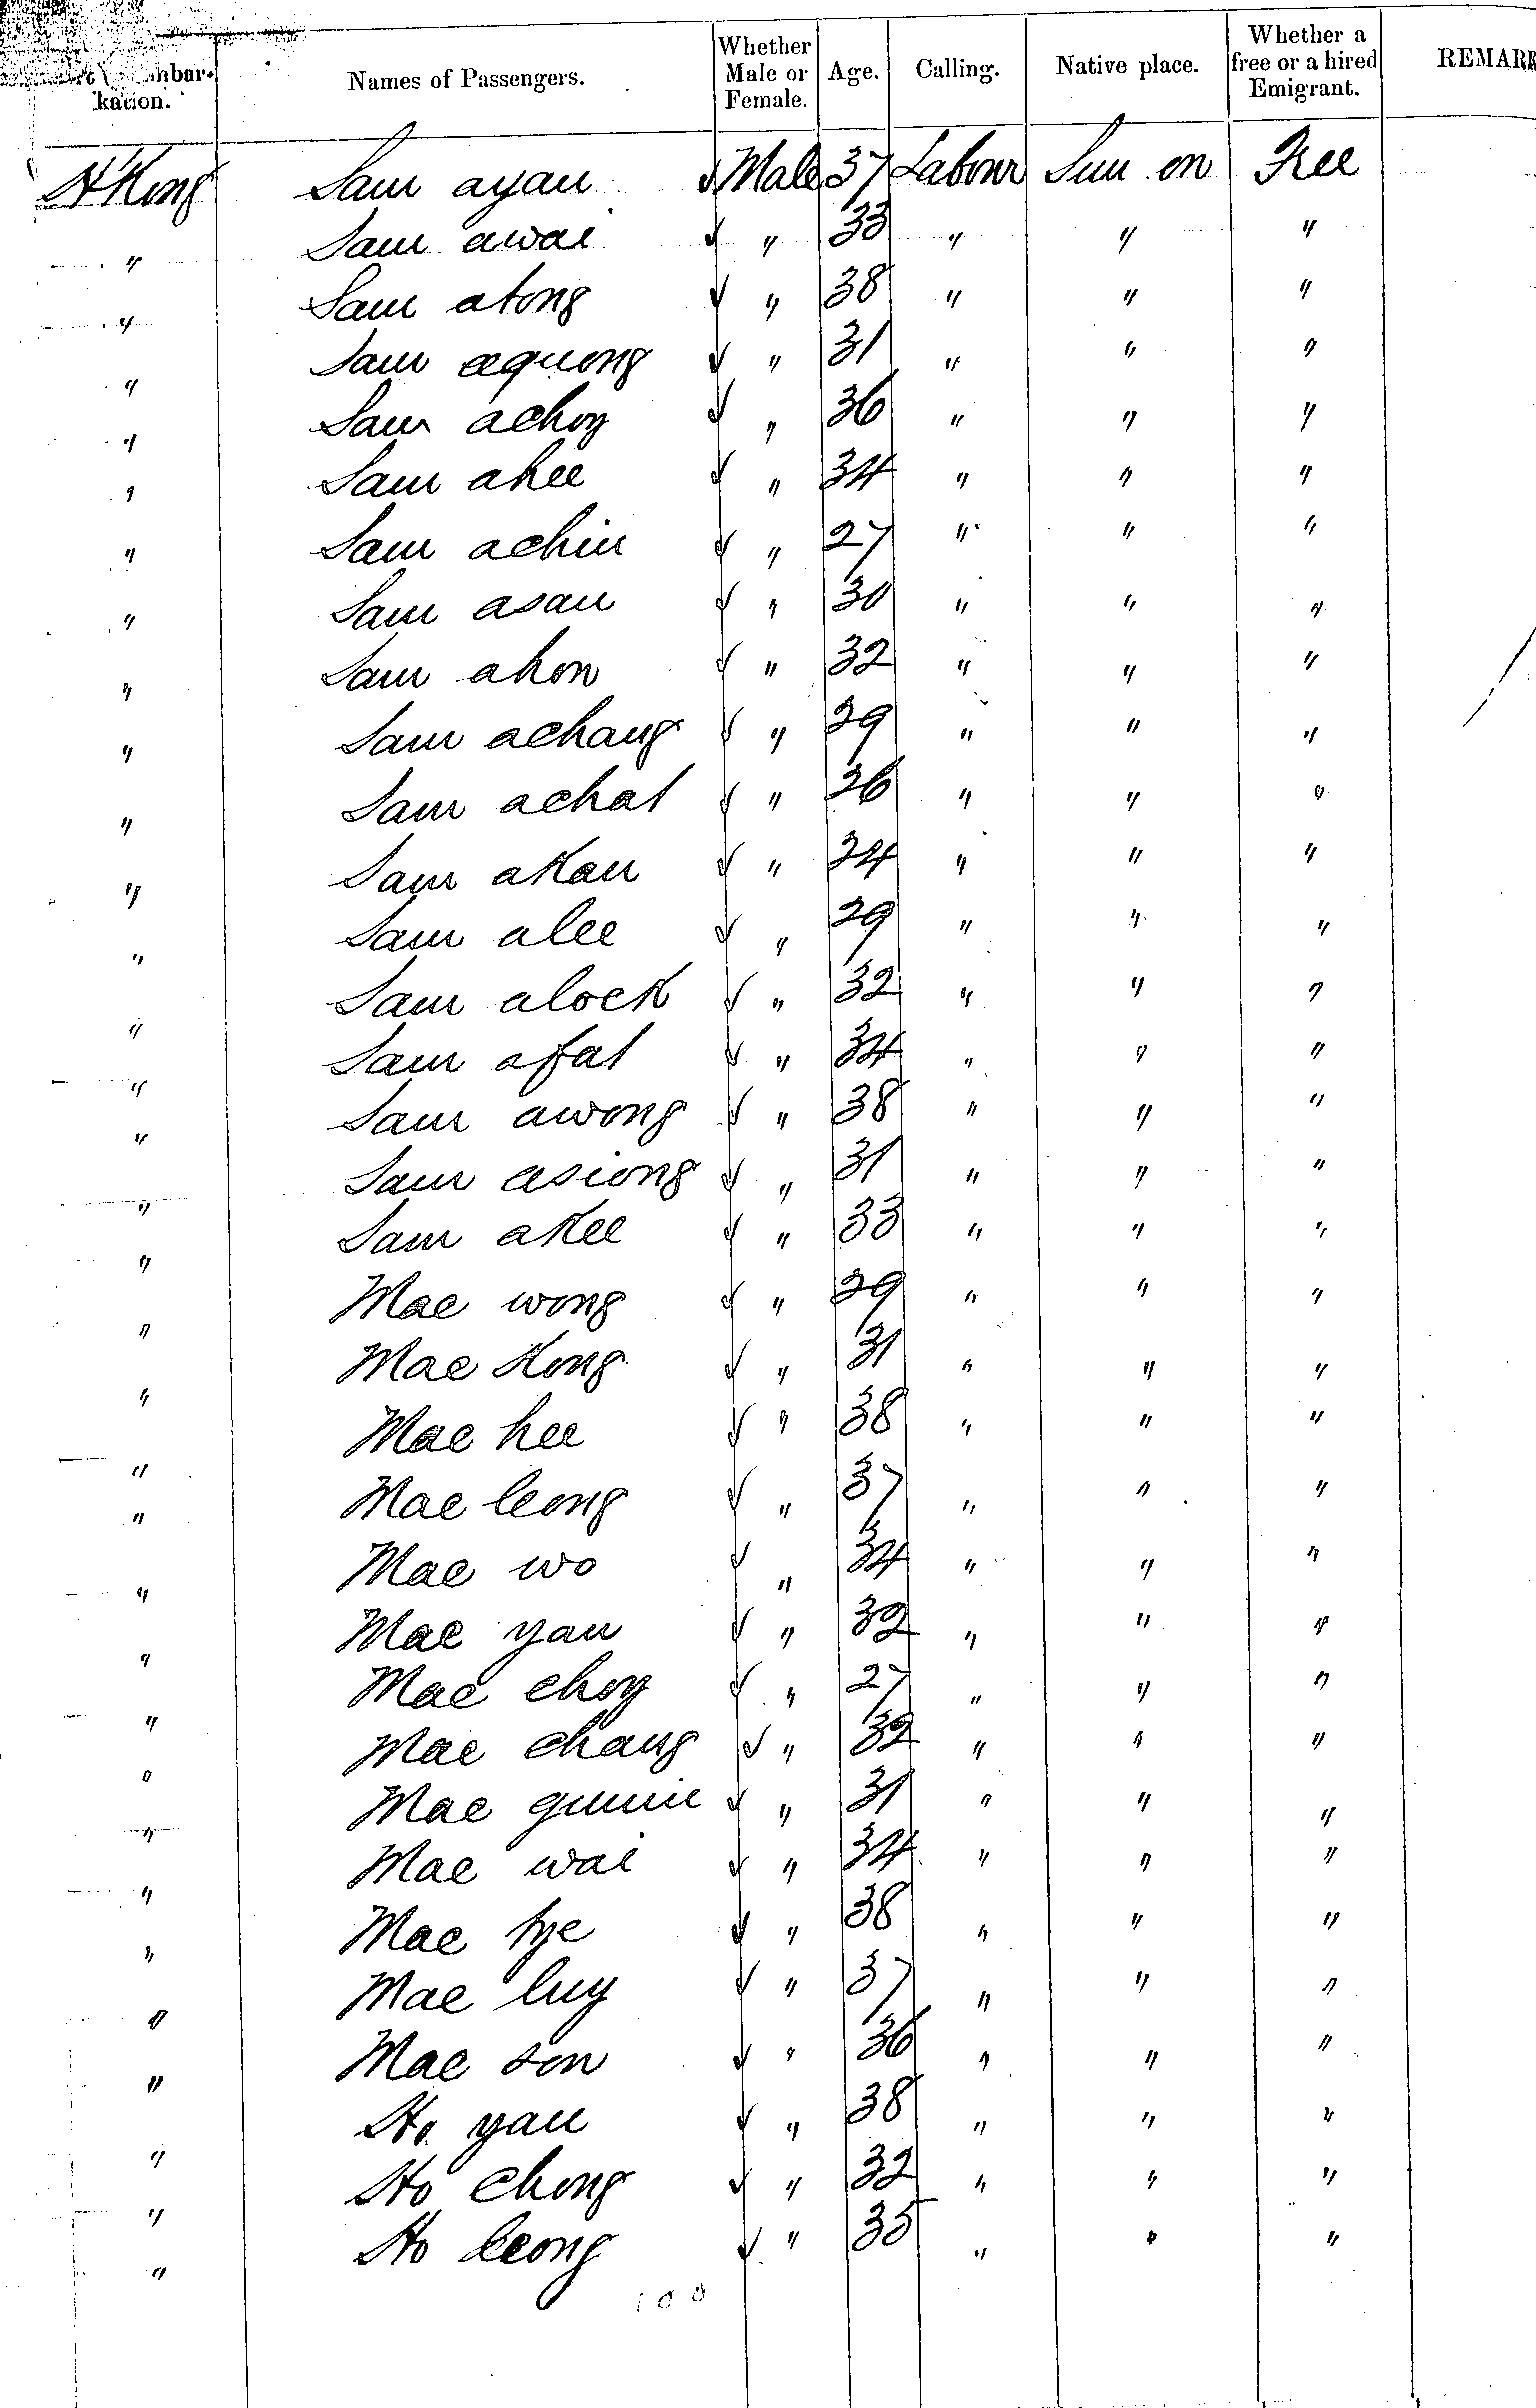 kation. Names of Passengers. Whether Male or Female. Age. Calling. Native place. Whether a free or a hired Emigrant. REMARK
H'Kong Sam ayau Male 37 Labour Sun on Free
" Sam awai " 33 " " "
" Sam atong " 38 " " "
" Sam aquong " 31 " " "
" Sam achoy " 36 " " "
" Sam ahee " 34 " " "
" Sam achin " 27 " " "
" Sam asau " 30 " " "
" Sam ahon " 32 " " "
" Sam achang " 29 " " "
" Sam achat " 26 " " "
" Sam akau " 24 " " "
" Sam alee " 29 " " "
" Sam alock " 32 " " "
" Sam afat " 34 " " "
" Sam awong " 38 " " "
" Sam asiong " 31 " " "
" Sam akee " 33 " " "
" Mae wong " 29 " " "
" Mae Kong " 31 " " "
" Mae hee " 38 " " "
" Mae leong " 37 " " "
" Mae wo " 34 " " "
" Mae yau " 32 " " "
" Mae choy " 27 " " "
" Mae chang " 32 " " "
" Mae " 31 " " "
" Mae wai " 34 " " "
" Mae tye " 38 " " "
" Mae luy " 37 " " "
" Mae son " 36 " " "
" Ho yau " 38 " " "
" Ho Chong " 32 " " "
" Ho leong " 35 " " "
100